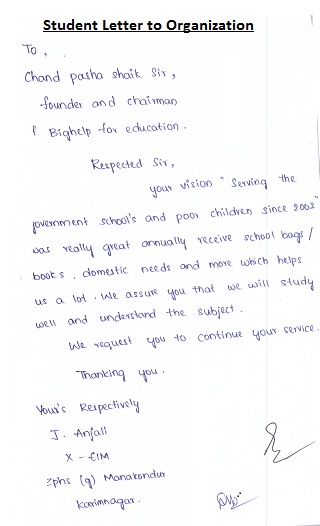 Student Letter to Organization
To,
Chand pasha shaik Sir,
founder and chairman
f Bighelp for education.
Respected Sir,
your vision "Serving the
government school's and poor children since 2002"
was really great annually receive school bags/
books, domestic needs and more which helps
us a lot. We assure you that we will study
well and understand the subject.
We request you to continue your service.
Thanking you.
Your's Respectively
J. Anjali
X - E/M
zphs (g) Manakondur
Karimnagar.